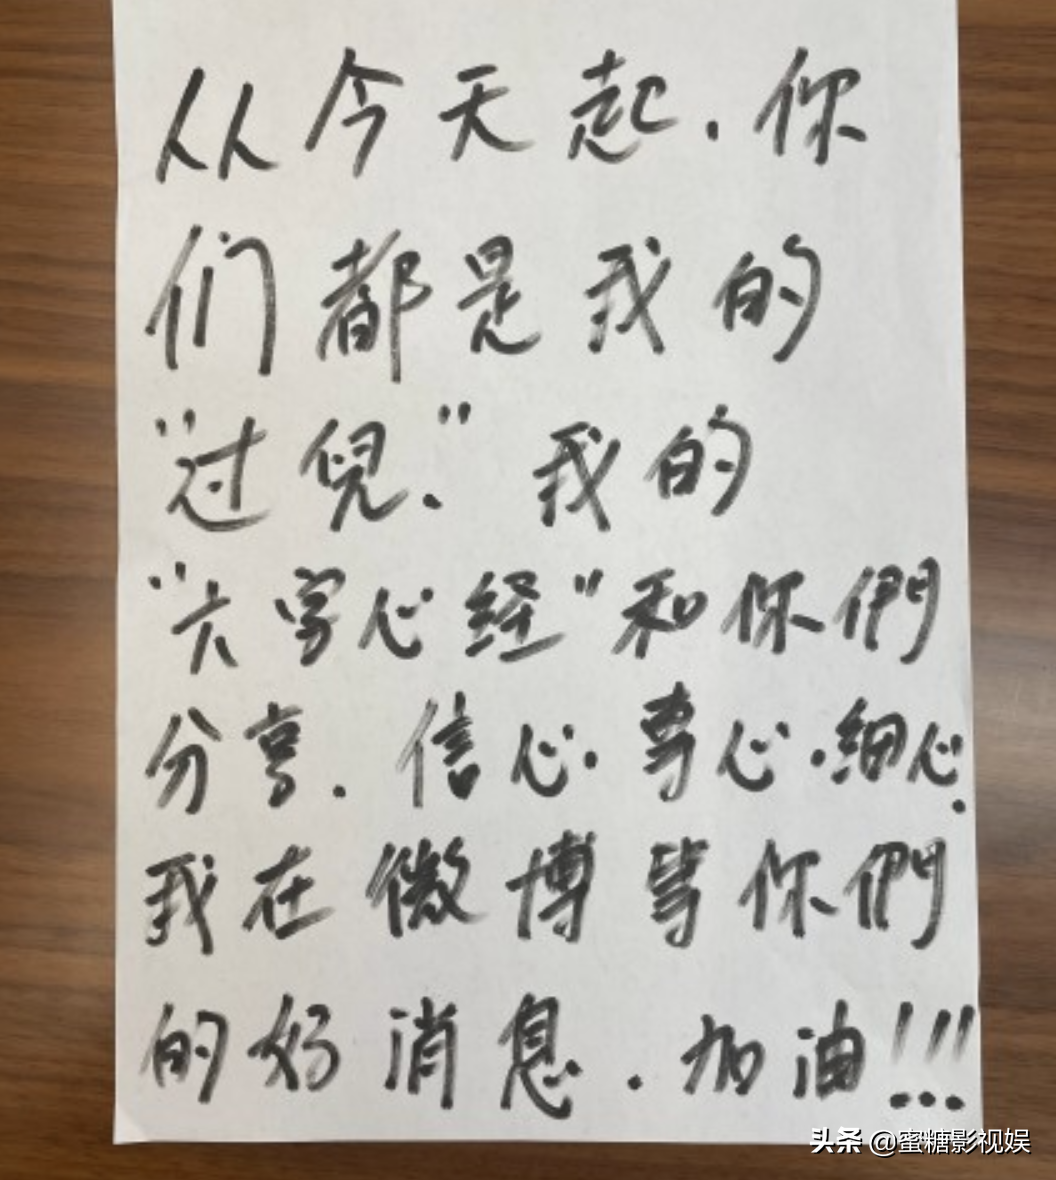 从今天起.你
们都是我的
"过兒."我的
"六字心经"和你們
分享.信心.专心.细心.
我在微博等你們
的好消息.加油!!!
头条 @蜜糖影视娱